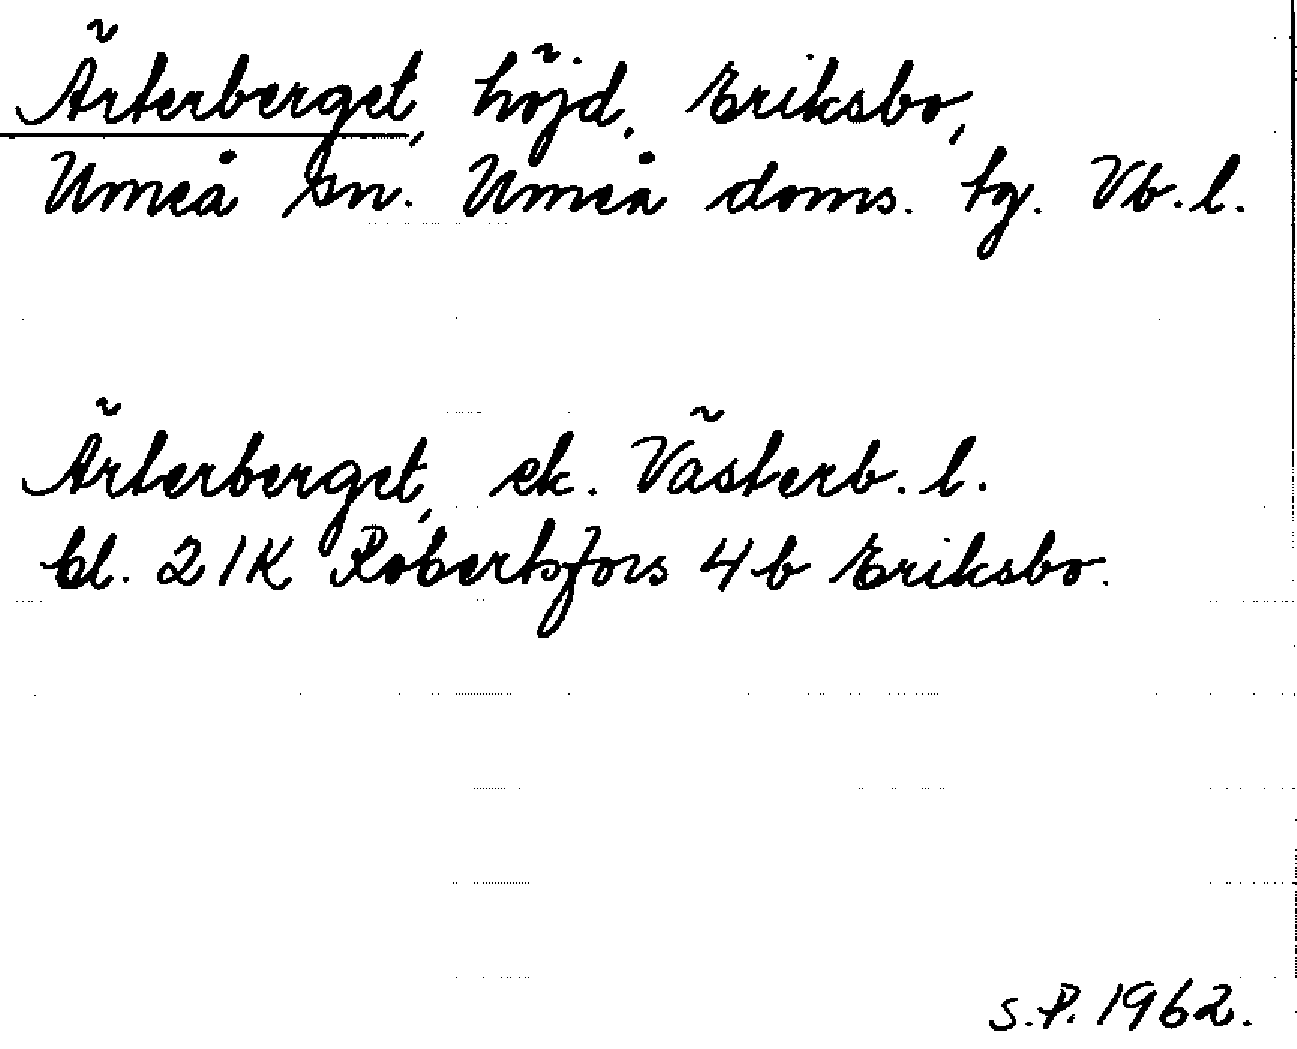 Ärterberget, höjd, Eriksbo,
Umeå sn. Umeå doms. tg. Vb. l.
Ärterberget, ek. Västerb. l.
bl. 21K Robertsfors 4b Eriksbo.
S.P. 1962.